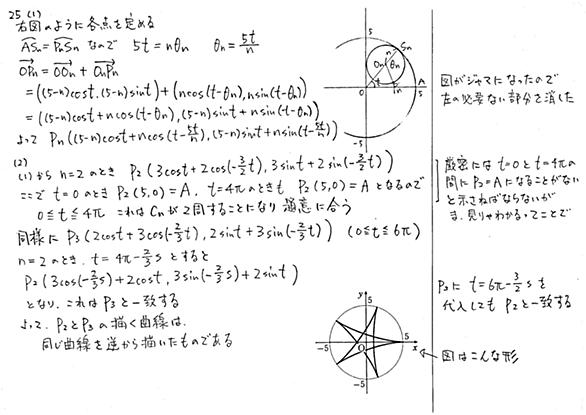 25 (1)
右図のように各点を定める
ASn = PnSn なので 5t = nθn θn = 5t/n
OPn = OOn + OnPn
= ((5-n)cost, (5-n)sint) + (ncos(t-θn), nsin(t-θn))
= ((5-n)cost + ncos(t-θn), (5-n)sint + nsin(t-θn))
よって Pn((5-n)cost + ncos(t-5t/n), (5-n)sint + nsin(t-5t/n))
(2)
(1)から n=2のとき P2(3cost + 2cos(-3/2t), 3sint + 2sin(-3/2t))
ここで t=0のとき P2(5,0)=A. t=4πのときも P2(5,0)=Aとなるので
0≦t≦4π これはCnが2周することになり 題意に合う
同様に P3(2cost + 3cos(-2/3t), 2sint + 3sin(-2/3t)) (0≦t≦6π)
n=2のとき. t = 4π-2/3s とすると
P2(3cos(-2/3s) + 2cost, 3sin(-2/3s) + 2sint)
となり. これはP3と一致する
よって. P2とP3の描く曲線は.
同じ曲線を逆から描いたものである
5
n
Sn
On
θn
t
A
O
Pn
5
-5
図がジャマになったので
左の必要ない部分を消した
厳密には t=0とt=4πの
間にP2=Aになることがない
と示さねばならないが
ま. 見りゃわかるってことで
P3に t=6π-3/2sを
代入しても P2と一致する
y
5
-5
O
5
x
-5
図はこんな形